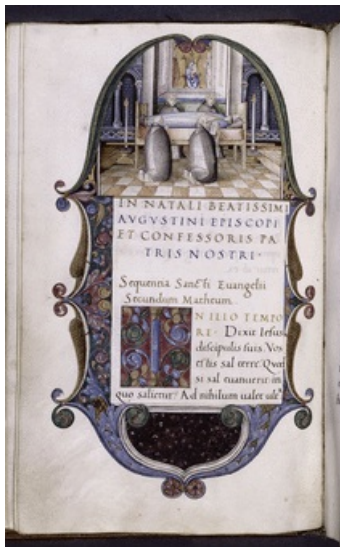 IN NATALI BEATISSIMI
AVGVSTINI EPISCOPI
ET CONFESSORIS PA
TRIS NOSTRI·
Sequentia Sancti Evangelii
Secundum Matheum
IN ILLO TEMPO
RE· Dixit Iesus
discipulis suis. Vos
estis sal terre. Quod
si sal euanuerit: in
quo salietur? Ad nihilum ualet ult